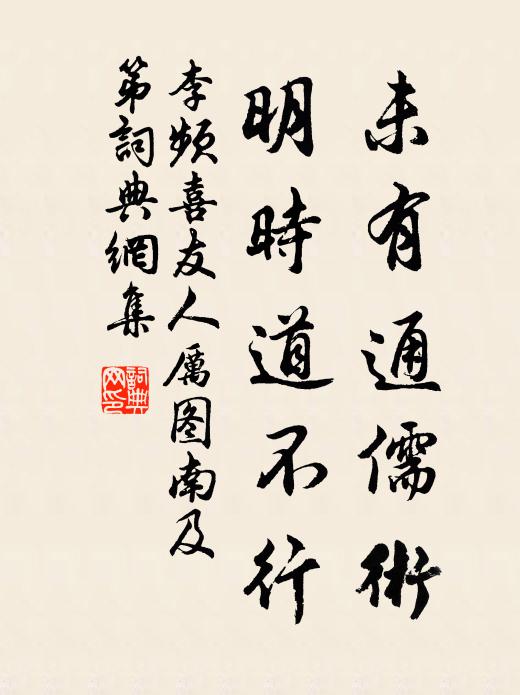 未有通儒術
明時道不行
李頻喜友人厲图南及
第詞典網集
詞典網印